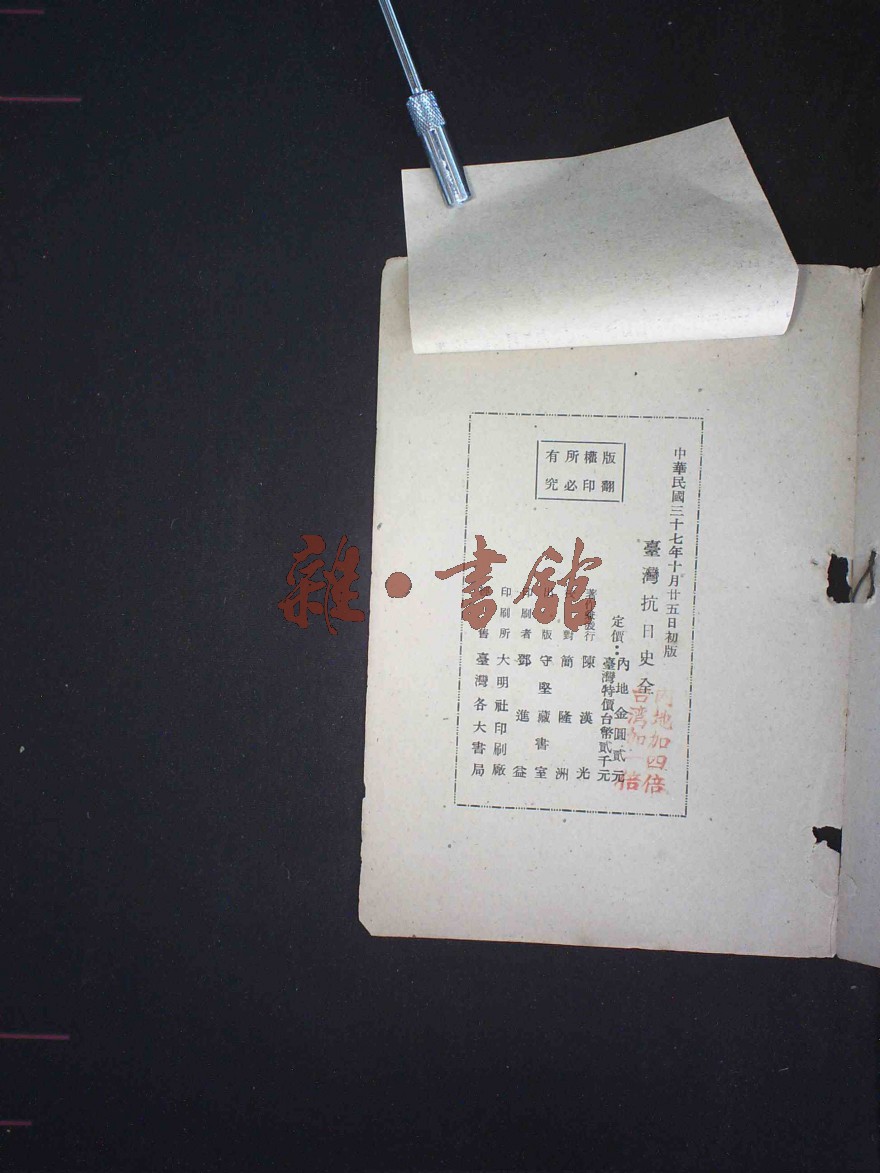 中華民國三十七年十月廿五日初版
臺灣抗日史全
定價：內地金圓貳元
臺灣特價台幣貳千元
內地加四倍
台灣加一倍
版權所有
翻印必究
陳漢光
對 簡隆洲
版 守堅藏書室
印刷者 鄧進益
印刷所 大明社印刷廠
售 臺灣各大書局
雜·書館